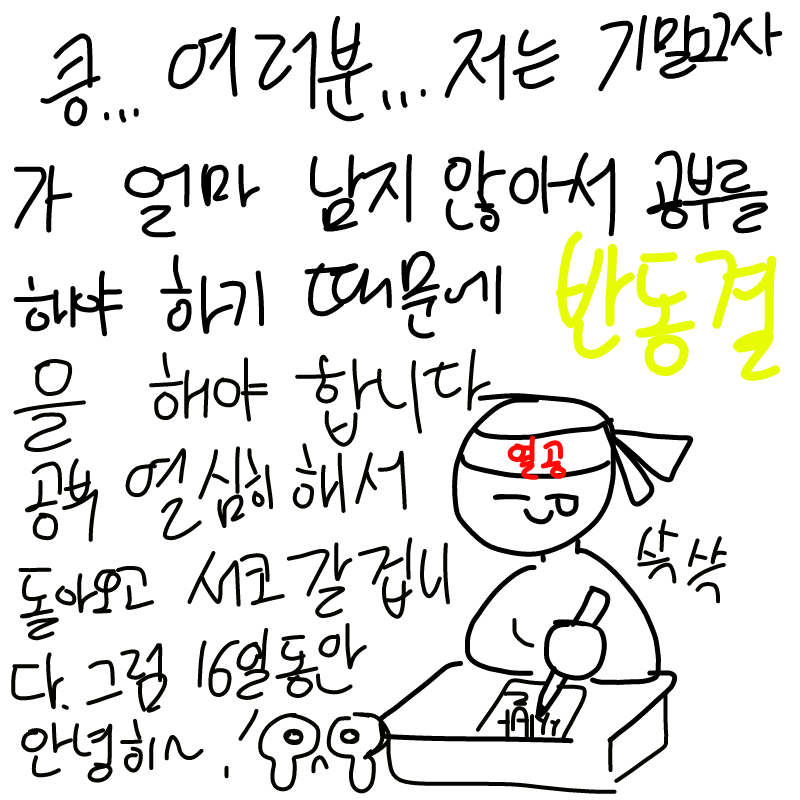 킁... 여러분... 저는 기말고사
가 얼마 남지 않아서 공부를
해야 하기 때문에 반동결
을 해야 합니다
공부 열심히 해서
돌아오고 서코갈겁니
다. 그럼 16일동안
안녕히~!
열공
삭삭